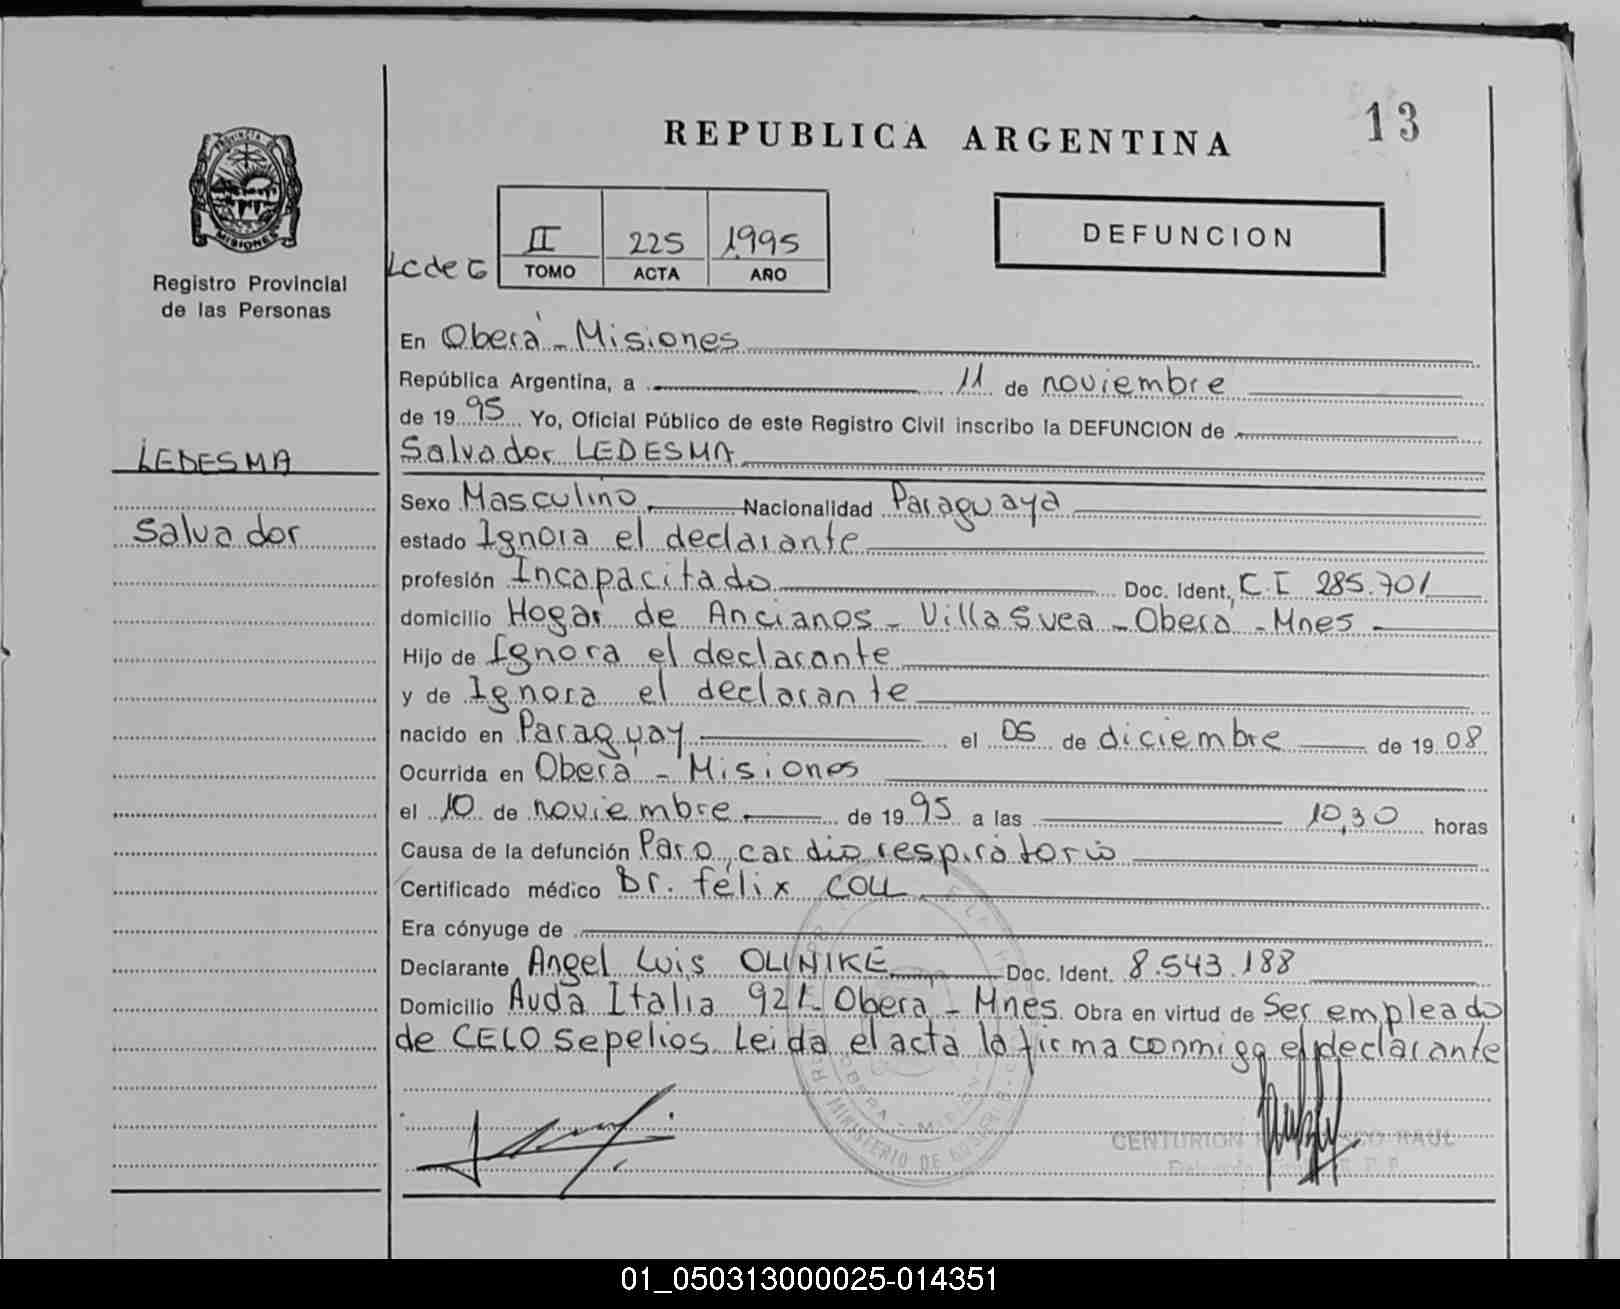 13
REPUBLICA ARGENTINA
PROVINCIA DE
MISIONES
Registro Provincial
de las Personas
DEFUNCION
II 225 1995
TOMO ACTA AÑO
En Oberá - Misiones
República Argentina, a 11 de noviembre
de 19 95 Yo, Oficial Público de este Registro Civil inscribo la DEFUNCION de
LEDESMA
Salvador LEDESMA
Salvador
Sexo Masculino Nacionalidad Paraguaya
estado Ignora el declarante
profesión Incapacitado Doc. Ident., C.I 285.701
domicilio Hogar de Ancianos - Villa Svea - Oberá - Mnes -
Hijo de Ignora el declarante
y de Ignora el declarante
nacido en Paraguay el 05 de diciembre de 19 08
Ocurrida en Oberá - Misiones
el 10 de noviembre de 19 95 a las 10,30 horas
Causa de la defunción Paro cardio respiratorio
Certificado médico Dr. félix COLL
Era cónyuge de
Declarante Angel Luis OLINIKE Doc. Ident. 8.543.188
Domicilio Avda Italia 921 Oberá - Mnes. Obra en virtud de Ser empleado
de CELO Sepelios Leida el acta la firma conmigo el declarante
MINISTERIO DE
OBERA - MISIONES
CENTURION RAUL
01_050313000025-014351